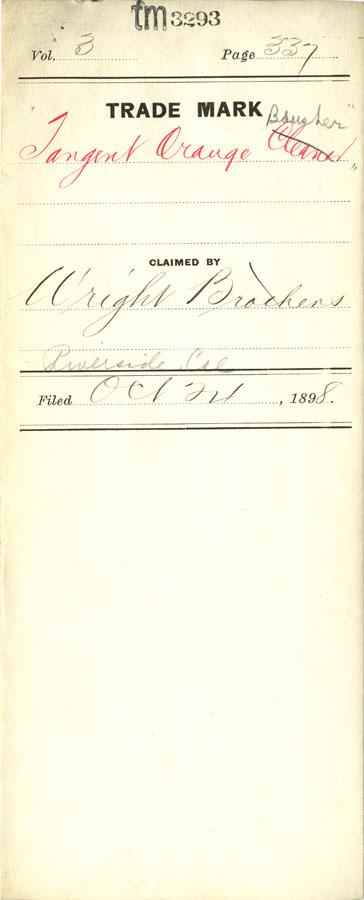 tm 3293
Vol. 3 Page 337
TRADE MARK
" Tangent Orange Cleaner "
CLAIMED BY
Wright Brothers
Riverside Cal
Filed Oct 24, 1898.